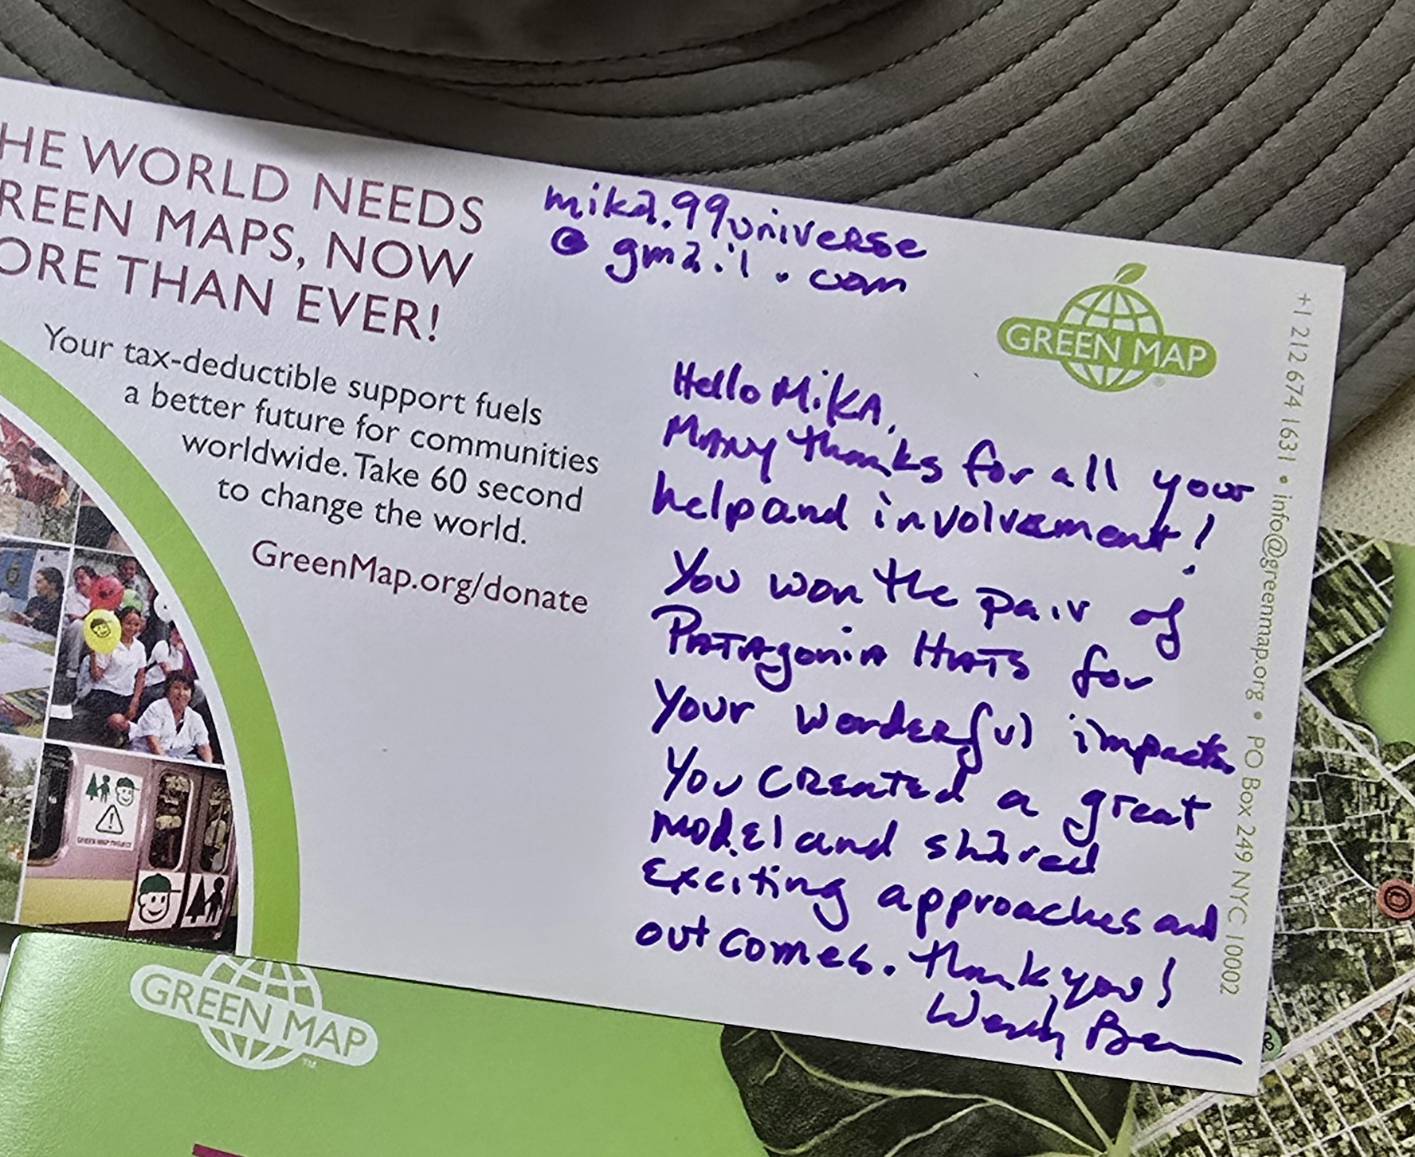 HE WORLD NEEDS
REEN MAPS, NOW
ORE THAN EVER!
Your tax-deductible support fuels
a better future for communities
worldwide. Take 60 second
to change the world.
GreenMap.org/donate
mika.99universe
@ gmail.com
GREEN MAP
Hello Mika,
Many thanks for all your
help and involvement!
You won the pair of
Patagonia Hats for
your wonderful impacts.
You created a great
model and shared
exciting approaches and
outcomes. Thank you!
Wendy
+1 212 674 1631 • info@greenmap.org • PO Box 249 NYC 10002
GREEN MAP PROJECT
GREEN MAP™